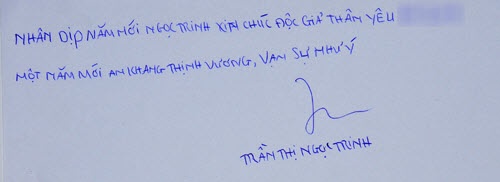 NHÂN DỊP NĂM MỚI NGỌC TRINH XIN CHÚC ĐỘC GIẢ THÂN YÊU
MỘT NĂM MỚI AN KHANG THỊNH VƯƠNG, VẠN SỰ NHƯ Ý
TRẦN THỊ NGỌC TRINH